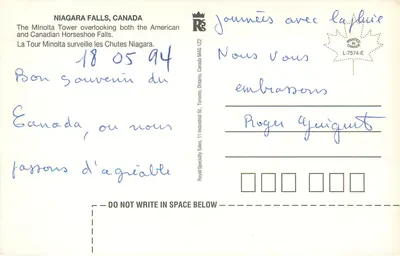 NIAGARA FALLS, CANADA
The Minolta Tower overlooking both the American
and Canadian Horseshoe Falls.
La Tour Minolta surveille les Chutes Niagara.
18 05 94
Bon souvenir du
Canada, ou nous
passons d'agréable
Royal Specialty Sales, 11 Industrial St., Toronto, Ontario, Canada M4G 1Z2
L-7574-E
journées avec la pluie
Nous vous
embrassons
Roger
DO NOT WRITE IN SPACE BELOW